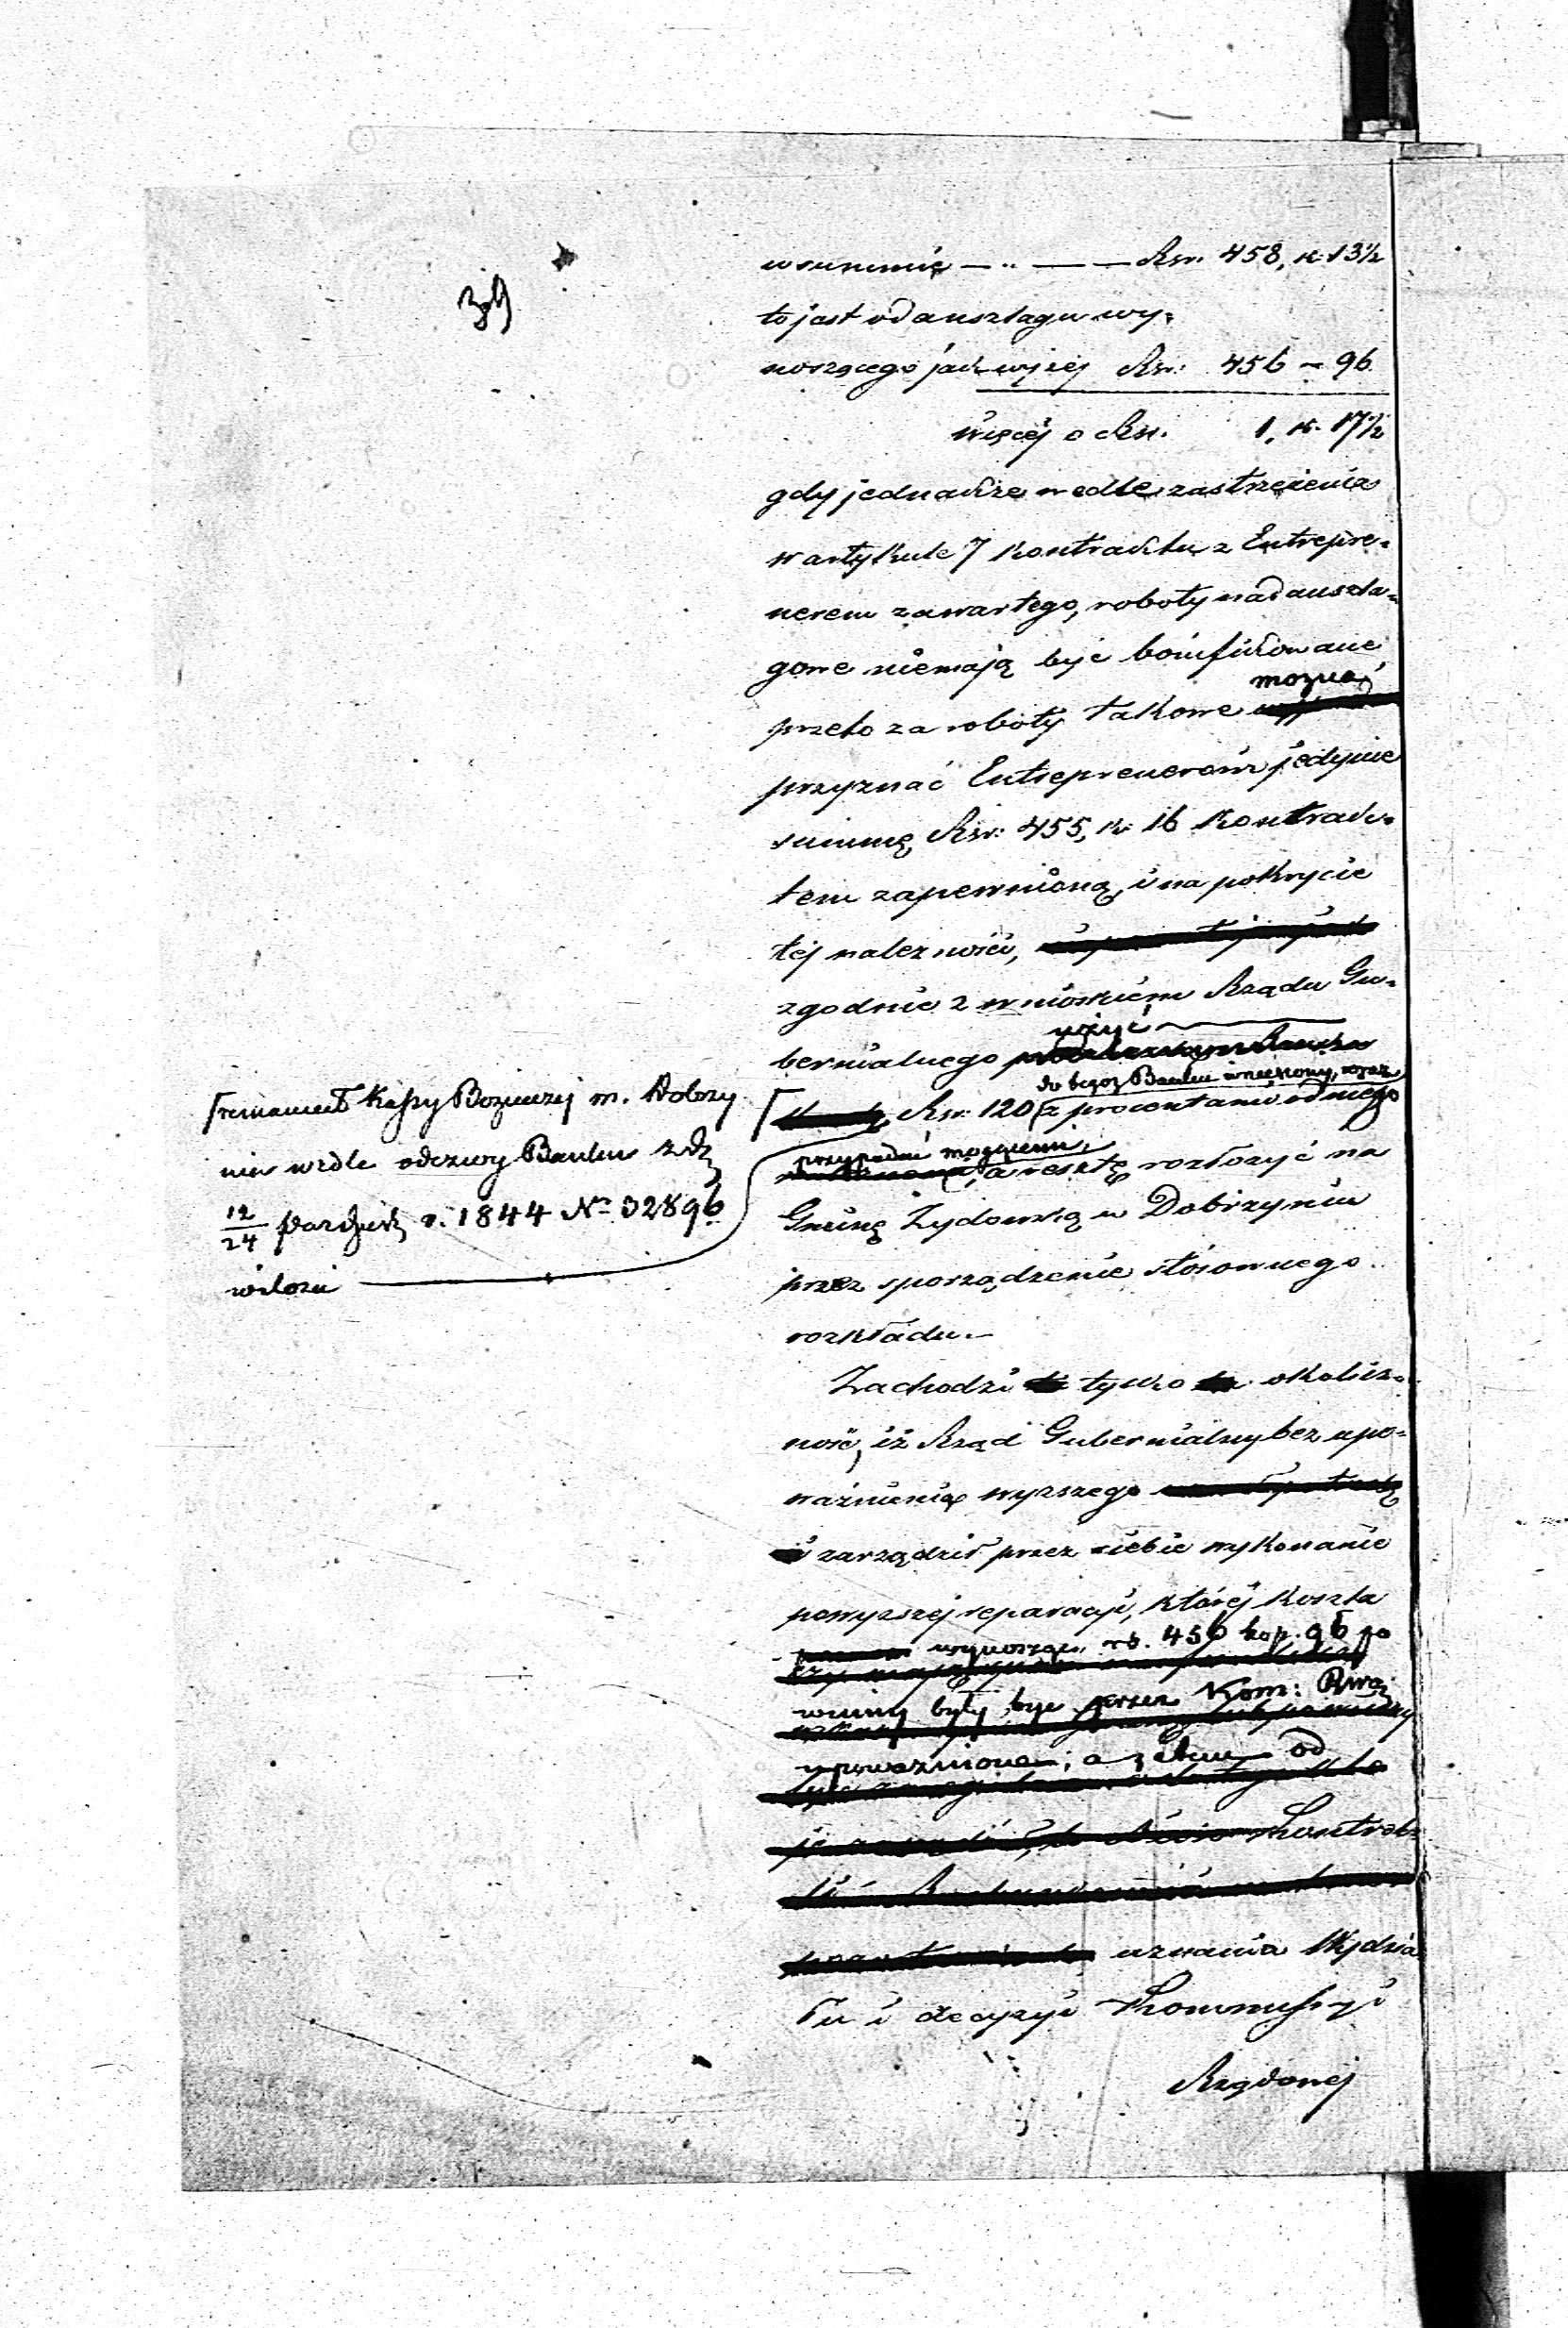 39
w summie — „ — Rsr. 458, k. 13½
to jest od anszlagu wy-
noszącego jak wyżej Rsr: 456 – 96
więcej o Rsr. 1, k. 17½
gdy jednakże wedle zastrzeżenia
w artykule 7 Kontraktu z Entrepre-
nerem zawartego, roboty nadanszla-
gowe niemają być bonifikowane
można
przeto za roboty takowe
przyznać Entreprenerowi jedynie
summę Rsr: 455, k. 16 Kontrak-
tem zapewnioną, i na pokrycie
tej należności,
zgodnie z wnioskiem Rządu Gu-
użyć
bernialnego
do tegoż Banku wniesiony, wraz
Rsr. 120 z procentami od niego
przypadać mogącemi,
a resztę rozłożyć na
Gminę Żydowską w Dobrzyniu
przez sporządzenie stosownego
rozkładu.—
remanent Kassy Bożniczej m. Dobrzy
nia wedle odezwy Banku z d.
12/24 Paździer. r. 1844 Nr 32896
w ilości
Zachodzi tylko okolicz-
ność, iż Rząd Gubernialny bez upo-
ważnienia wyższego
zarządził przez siebie wykonanie
powyższej reparacyi, której koszta
wynosząc rs. 456 kop. 96 po
winny były być przez Kom: Rząd.
upoważnione; a zatem od
Kontrol
uznania Wydzia
łu i decyzyi Kommissyi
Rządowej